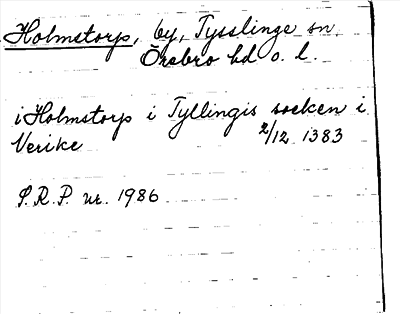 Holmstorp, by, Tysslinge sn.
Örebro hd o. l.
i Holmstorp i Tyllingis socken i
Nerike 2/12 1383
S.R.P. nr. 1986